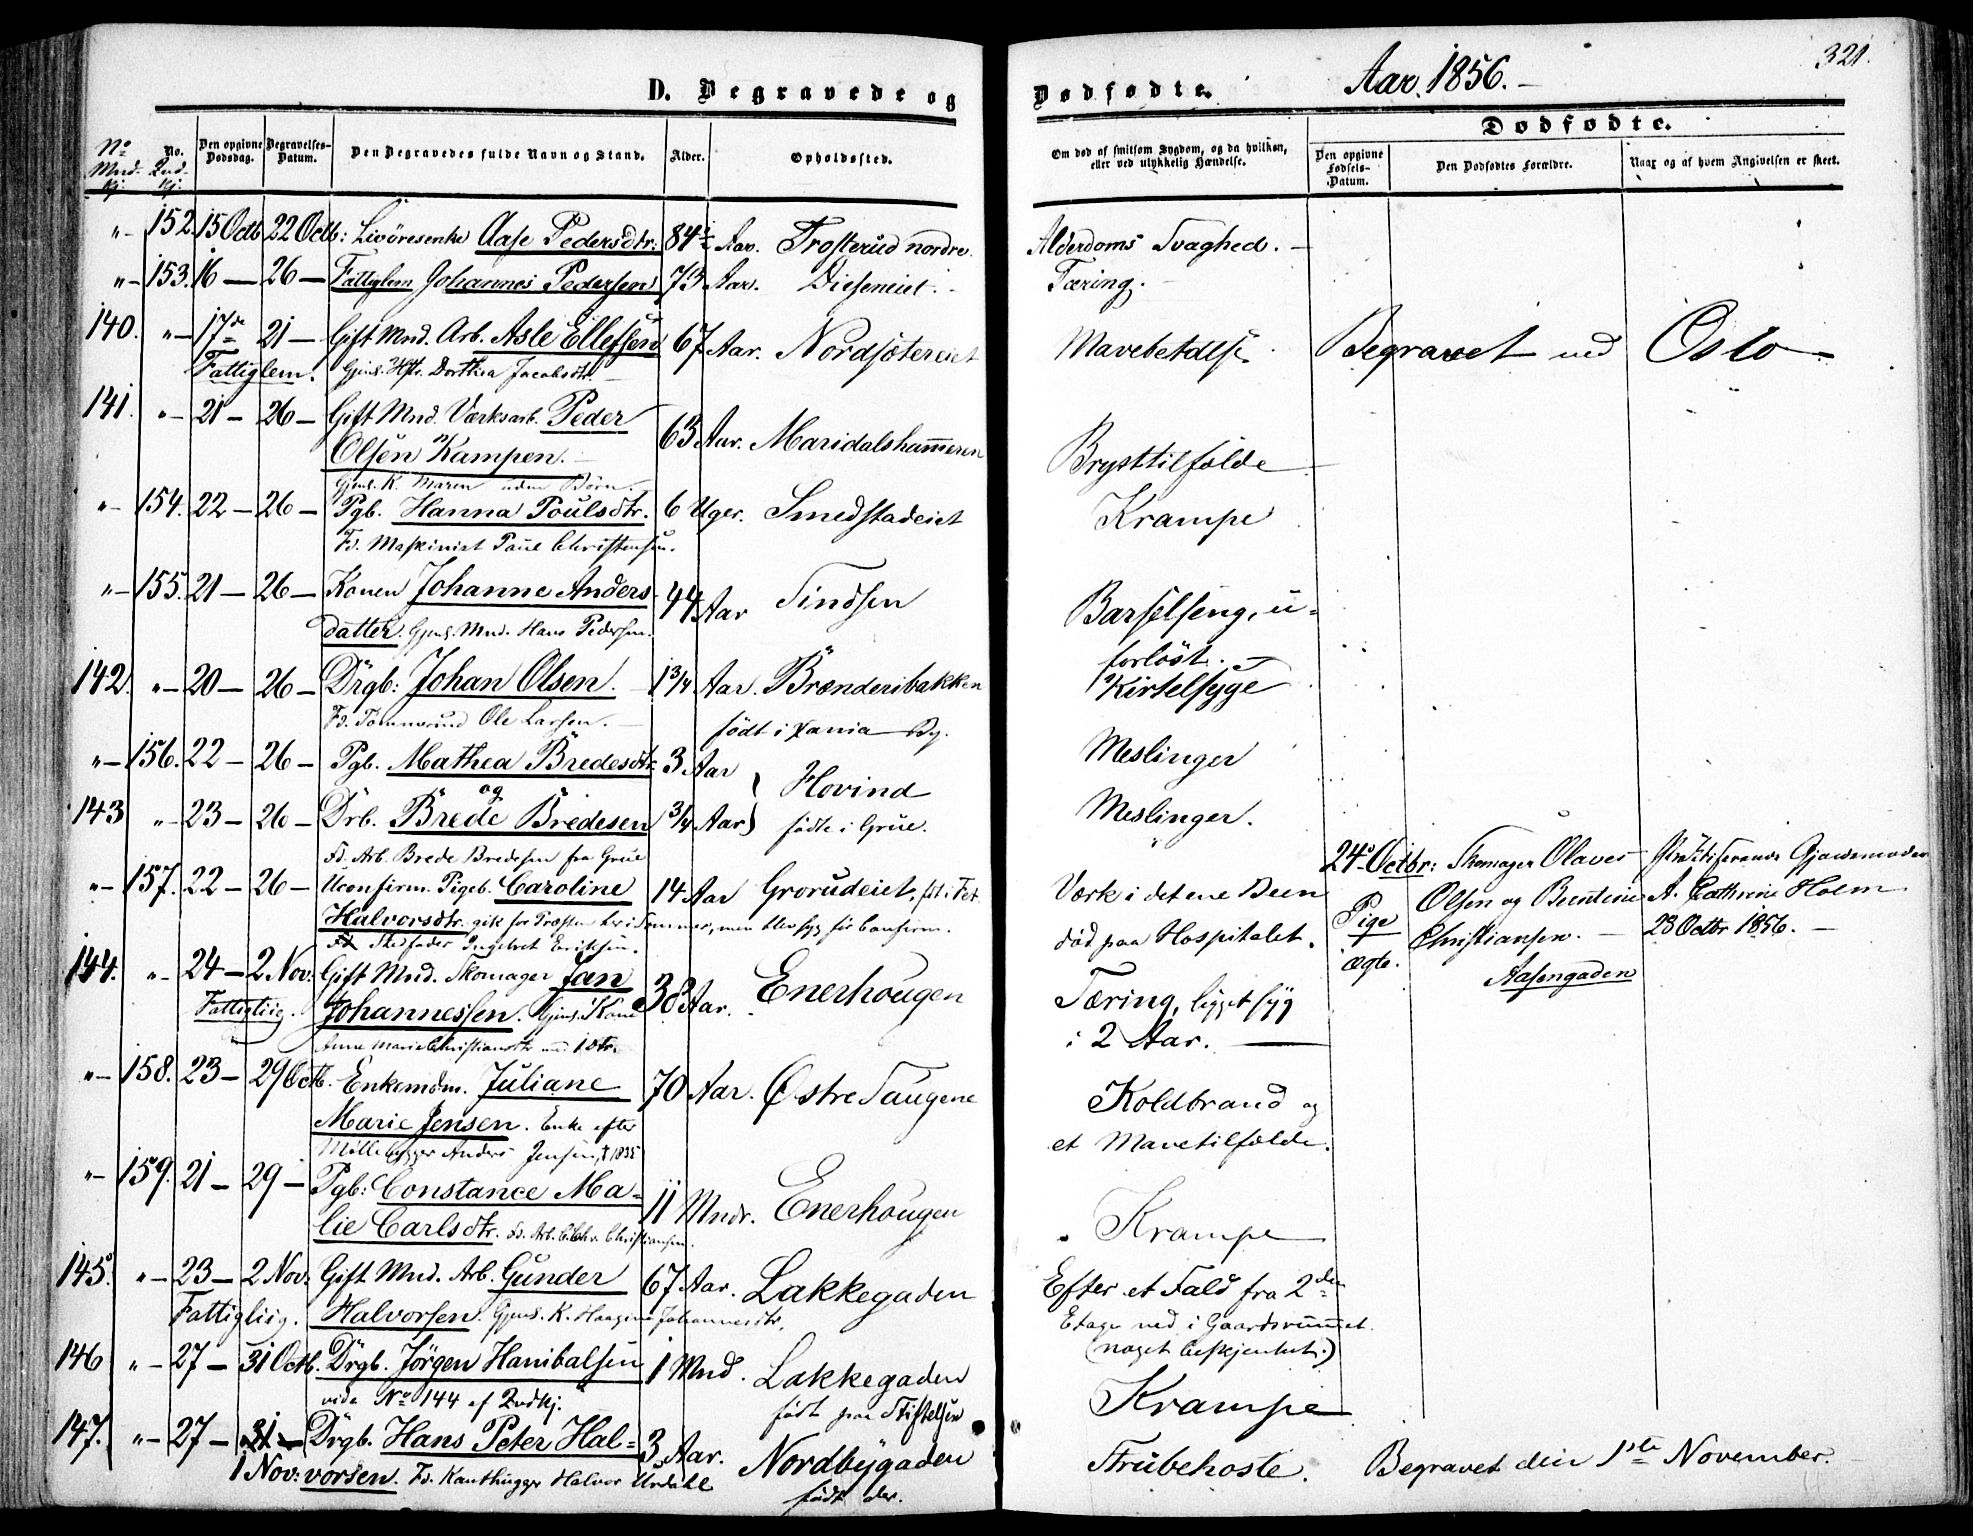 D. Begravede og
Dødfødte.
Aar 1856.
321.
No Mnd. Kj.
No. Qvd. Kj.
Den opgivne Dødsdag.
Begravelses-Datum.
Den Begravedes fulde Navn og Stand.
Alder.
Opholdssted.
Om død af smitsom Sygdom, og da hvilken, eller ved ulykkelig Hændelse.
Dødfødte.
Den opgivne Fødsels-Datum.
Den Dødfødtes Forældre.
Naar og af hvem Angivelsen er skeet.
"- 152. 15 Octb 22 Octb: Livöresenke Aase Pedersdtr: 84½ Aar. Trosterud nordre. Alderdoms Svaghed. -
"- 153. 16 - 26 - Fattiglem Johannes Pedersen 73 Aar. Dieseneiet. - Tæring. -
140. "- 17de 21 - Gift Mnd. Arb. Asle Ellefsen 67 Aar. Nordsjötereiet Mavebetdlse. Begravet ved Oslo -
Fattiglem. Gjenl. Hstr. Dorthea Jacobsdtr. -
141. "- 21 - 26 - Gift Mnd. Værksarb. Peder
Olsen Kampen. - 63 Aar. Maridalshammeren Brysttilfælde
Gjenl. K. Maren uden Börn. -
"- 154. 22 - 26 - Pgb. Hanna Poulsdtr. 6 Uger. Smedstadeiet Krampe
Fd. Maskinist Paul Christensen.
"- 155. 21 - 26 - Konen Johanne Anders 44 Aar Sindsen Barselseng, u-
datter. Gjenl. Mnd. Hans Pedersen. forlöst. -
142. "- 20 - 26 - Drgb: Johan Olsen. 1¾ Aar. Brænderibakken Kirtelsyge
Fd. Tömmermd Ole Larsen. - födt i Xania By.
"- 156. 22 - 26 - Pgb. Mathea Bredesdtr 3 Aar Meslinger
og Hovind
143 "- 23 - 26 - Drb. Brede Bredesen ¾ Aar födte i Grue. Meslinger.
Fd. Arb. Brede Bredesen fra Grue
"- 157. 22 - 26 - Uconfirm. Pigeb. Caroline 14 Aar Grorudeiet, fdt. i Fet Værk i det ene Been
Halvorsdtr. gik for Præsten her i Sommer, men blev syg för Confirm. död paa Hospitalet.
Fd Stedfader Ingebret Eriksen.
24de Octbr: Skomager Olaves Practiserende Gjordemoder
Pige Olsen og Berntine A. Cathrine Holm
ægte. Christiansen. - 28 Octbr 1856. -
Aasengaden
144. "- 24 - 2 Nov: Gift Mnd. Skomager Jan
Fattigliig. Johannessen. Gjenl. Kone 38 Aar. Enerhougen Tæring, ligget syg
Anne Marie Christiansdtr med 1 dtr. i 2 Aar.
"- 158. 23 - 29 Octb. Enkemdm. Juliane 70 Aar. Østre Taugene Koldbrand og
Marie Jensen. Enke efter et Mavetilfælde.
Möllebygger Anders Jensen, † 1835
"- 159. 21 - 29 - Pgb: Constance Ma- 11 Mndr. Enerhougen Krampe
lie Carlsdtr. Fd. Arb. C. Chr. Christiansen.
145. "- 23 - 2 Nov. Gift Mnd. Arb. Gunder 67 Aar. Lakkegaden Efter et Fald fra 2den
Fattigliig. Halvorsen. Gjenl. K. Haagine Johannesdtr. Etage ned i Gaardsrummet.
(noget beskjenket.)
146 "- 27 - 31 Octb. Drgb. Jörgen Hanibalsen 1 Mnd. Lakkegaden Krampe
vide No 144 af Qvdkj. födt paa Stiftelsen
147. "- 27 - 31 - Drgb. Hans Peter Hal- 3 Aar. Nordbygaden Strubehoste. Begravet den 1ste November.
1 Nov: vorsen. Fd. Kanthugger Halvor Urdahl födt der.